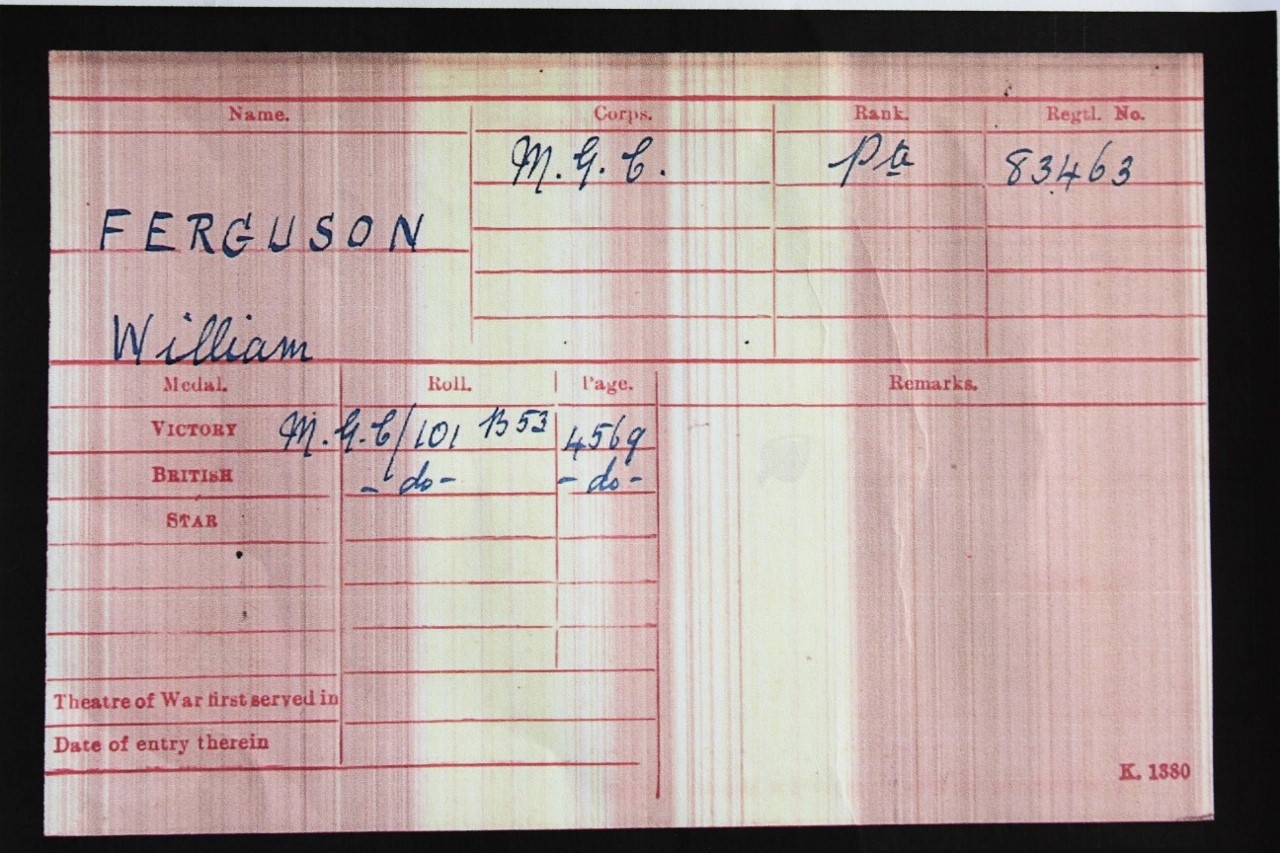 Name. Corps. Rank. Regtl. No.
M.G.C. Pte 83463
FERGUSON
William
Medal. Roll. Page. Remarks.
VICTORY M.G.C/101 B53 4569
BRITISH -do- -do-
STAR
Theatre of War first served in
Date of entry therein
K. 1380